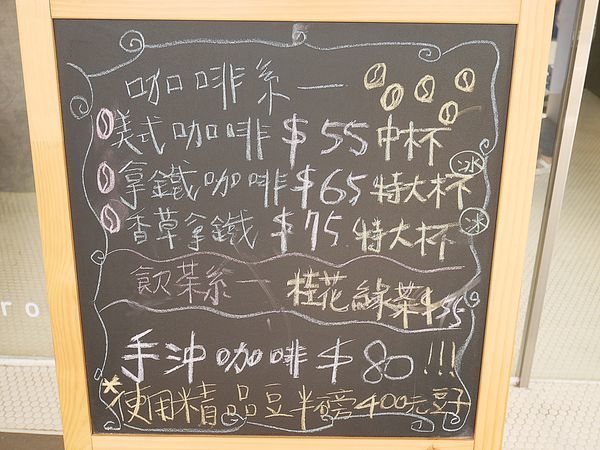 咖啡系一
美式咖啡 $55 中杯
拿鐵咖啡 $65 特大杯 冰
香草拿鐵 $75 特大杯 冰
飲茶系一 桂花綠茶 $35
手沖咖啡 $80!!!
*使用精品豆半磅400元豆子
ro